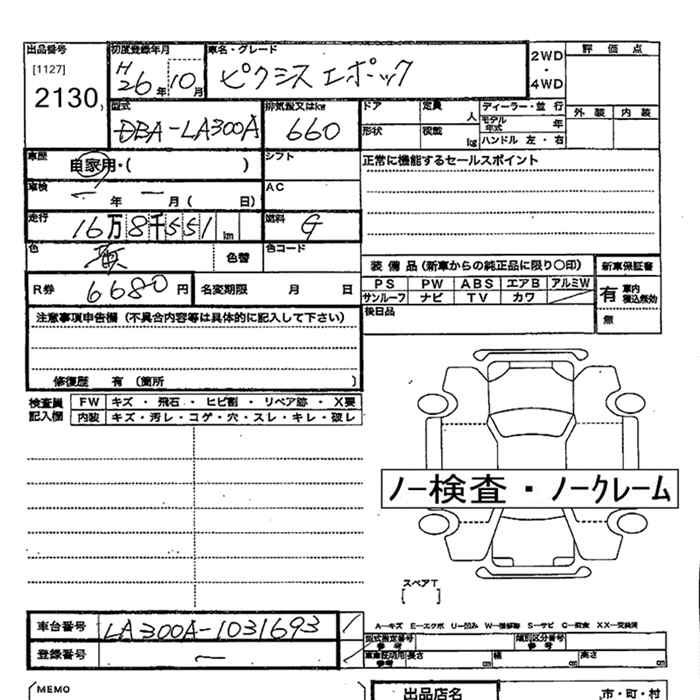 出品番号 初度登録年月 車名・グレード
[1127] H26年10月 ピクシスエポック
2130
2WD・4WD
評価点
外装 内装
型式 排気量又はkw ドア 定員 人 ディーラー・並行
DBA-LA300A 660
モデル年式 年
形状 積載 kg ハンドル 左・右
車歴 自家用・( )
シフト
正常に機能するセールスポイント
車検 ー年 ー月( 日)
AC
走行 16万8千551km
燃料 G
色 色替 色コード
装備品(新車からの純正品に限り〇印) 新車保証書
PS PW ABS エアB アルミW
サンルーフ ナビ TV カワ
有 車内積込無効
無
R券 6680円 名変期限 月 日
後日品
注意事項申告欄(不具合内容等は具体的に記入して下さい)
修復歴 有〔箇所 〕
検査員記入欄
FW キズ・飛石・ヒビ割・リペア跡・X要
内装 キズ・汚レ・コゲ・穴・スレ・キレ・破レ
ノー検査・ノークレーム
スペアT
[ ]
車台番号 LA300A-1031693
登録番号 ー
A-キズ E-エクボ U-凹ミ W-補修跡 S-サビ C-腐食 XX-交換済
型式指定番号 参考 類別区分番号 参考
長さ cm 幅 cm 高さ cm
MEMO
出品店名
市・町・村